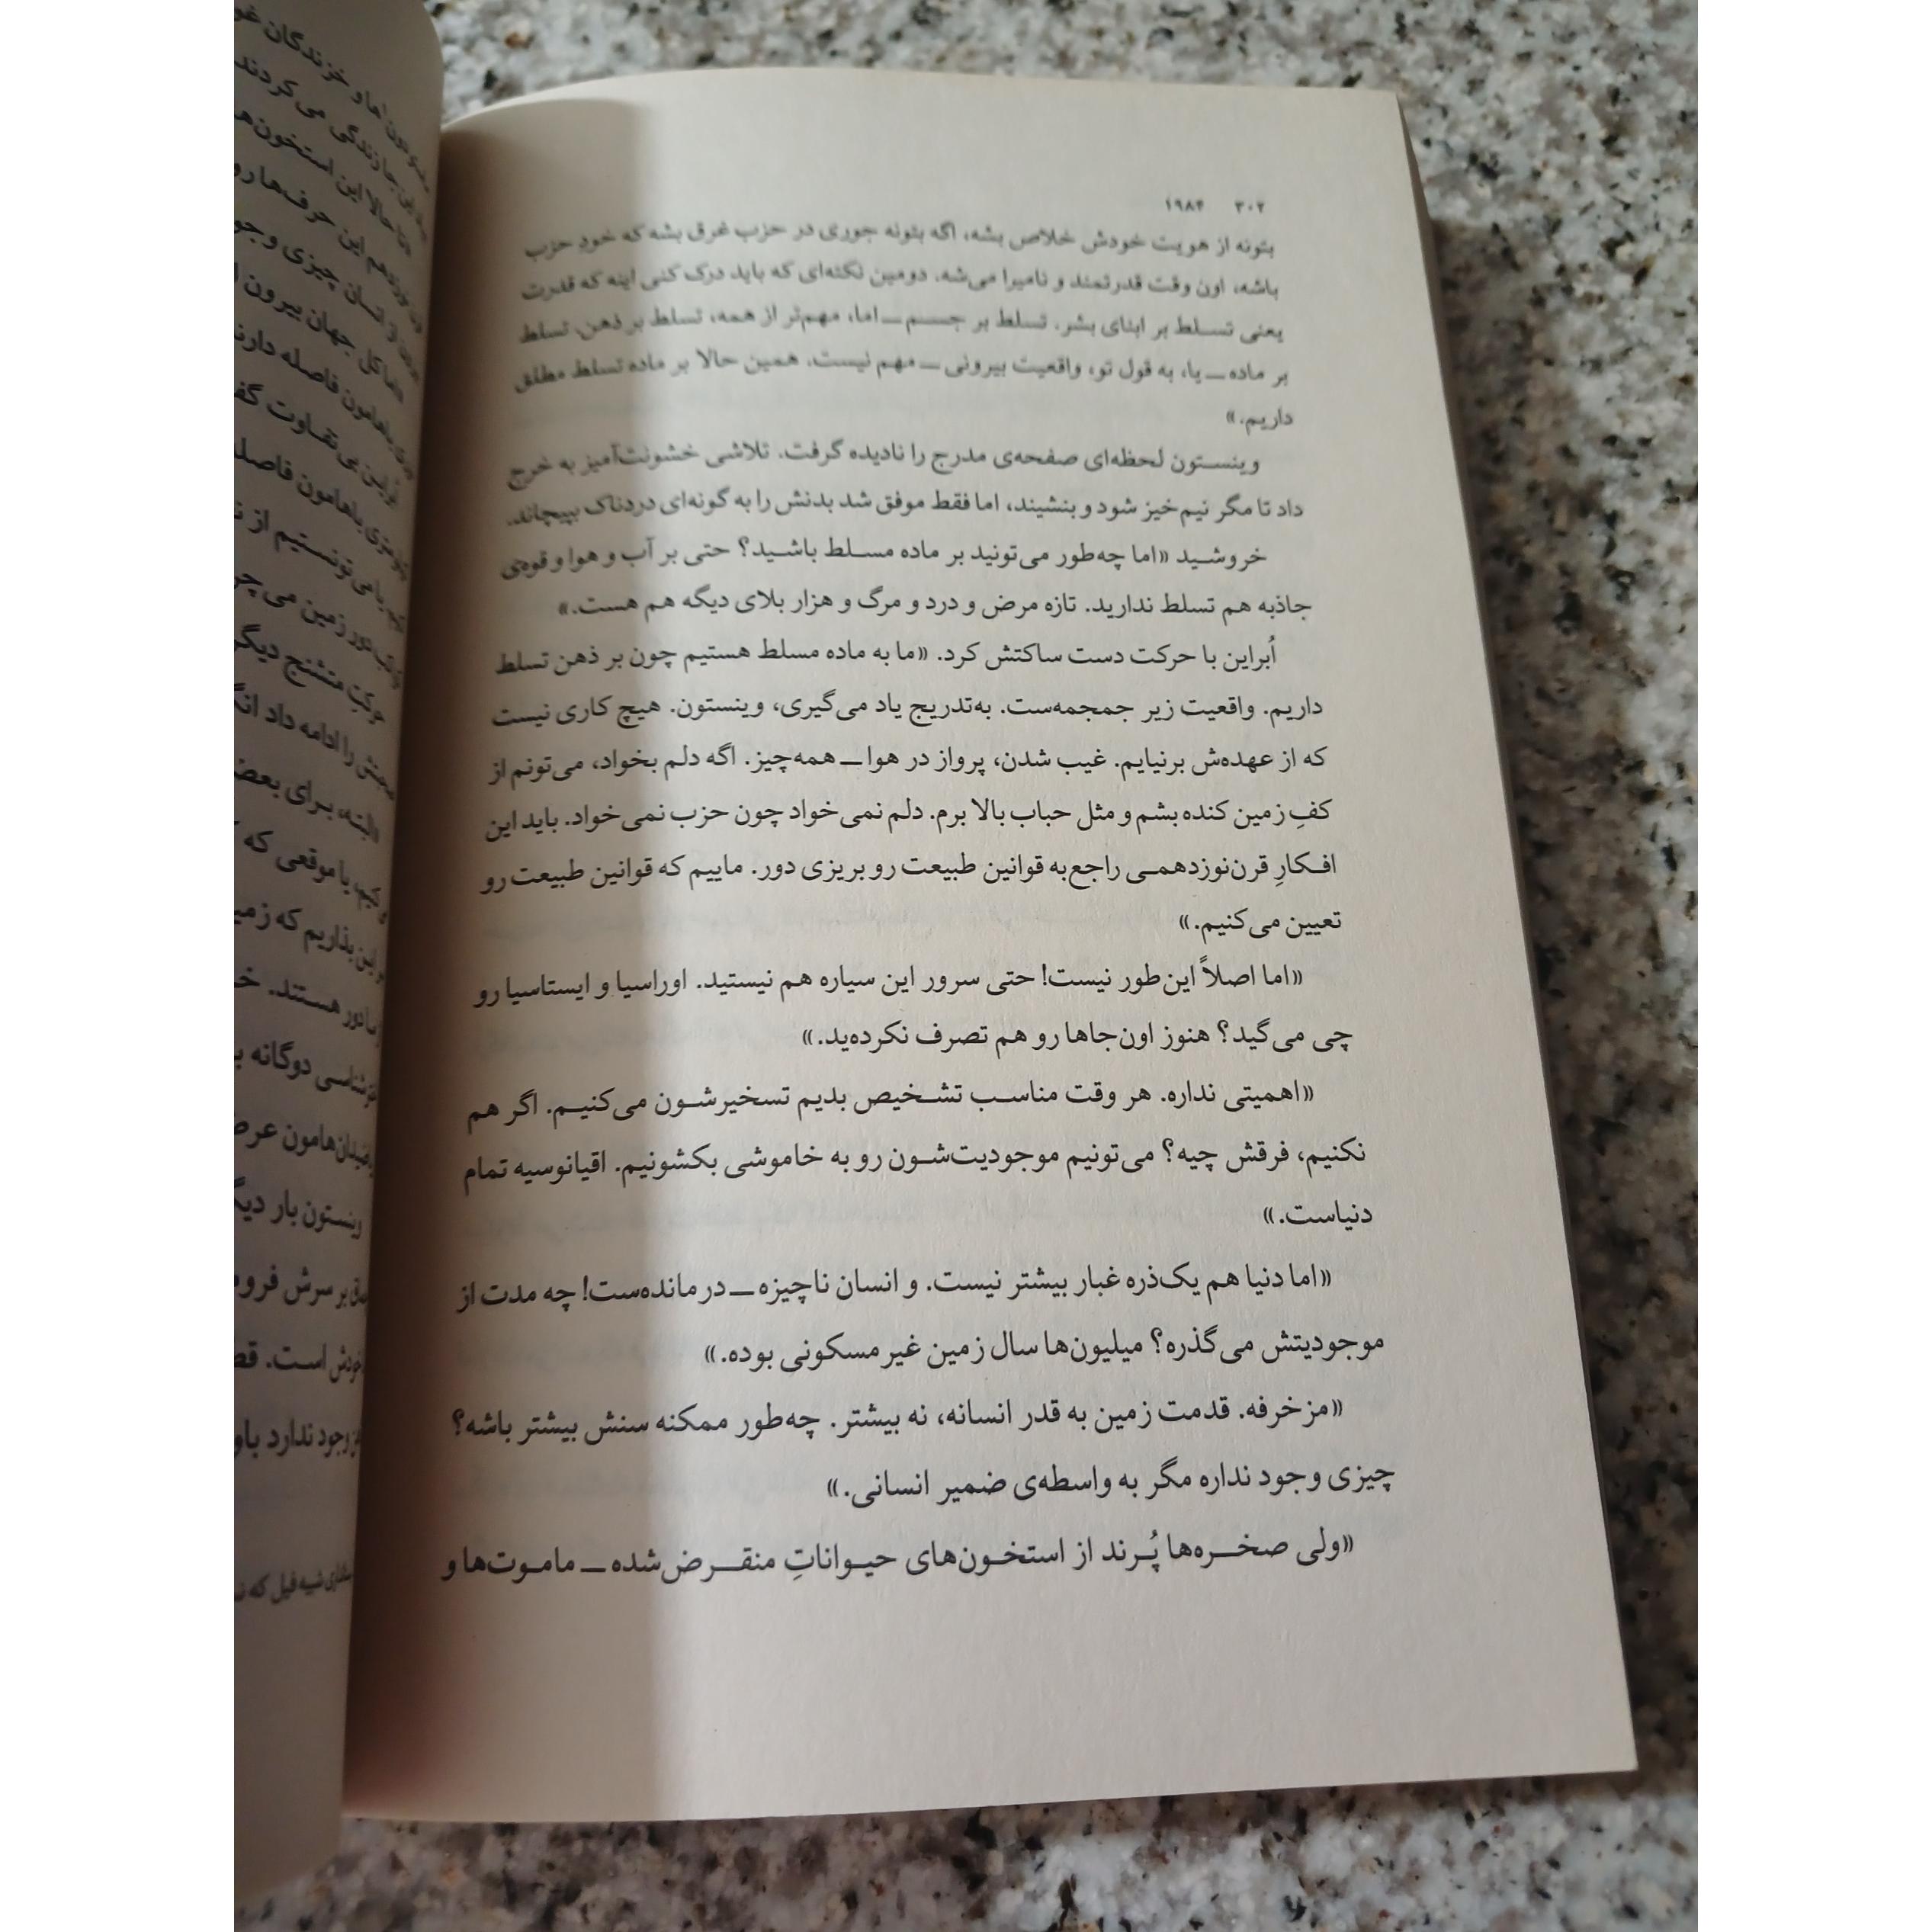 ۳۰۲ ۱۹۸۴
بتونه از هویت خودش خلاص بشه، اگه بتونه جوری در حزب غرق بشه که خودِ حزب
باشه، اون وقت قدرتمند و نامیرا می‌شه. دومین نکته‌ای که باید درک کنی اینه که قدرت
یعنی تسلط بر ابنای بشر. تسلط بر جسم ــ اما، مهم‌تر از همه، تسلط بر ذهن. تسلط
بر ماده ــ یا، به قول تو، واقعیت بیرونی ــ مهم نیست. همین حالا بر ماده تسلط مطلق
داریم.»
وینستون لحظه‌ای صفحه‌ی مدرج را نادیده گرفت. تلاشی خشونت‌آمیز به خرج
داد تا مگر نیم‌خیز شود و بنشیند، اما فقط موفق شد بدنش را به گونه‌ای دردناک بپیچاند.
خروشید «اما چه‌طور می‌تونید بر ماده مسلط باشید؟ حتی بر آب و هوا و قوه‌ی
جاذبه هم تسلط ندارید. تازه مرض و درد و مرگ و هزار بلای دیگه هم هست.»
اُبراین با حرکت دست ساکتش کرد. «ما به ماده مسلط هستیم چون بر ذهن تسلط
داریم. واقعیت زیر جمجمه‌ست. به‌تدریج یاد می‌گیری، وینستون. هیچ کاری نیست
که از عهده‌ش برنیایم. غیب شدن، پرواز در هوا ــ همه‌چیز. اگه دلم بخواد، می‌تونم از
کفِ زمین کنده بشم و مثل حباب بالا برم. دلم نمی‌خواد چون حزب نمی‌خواد. باید این
افکارِ قرن‌نوزدهمی راجع‌به قوانین طبیعت رو بریزی دور. ماییم که قوانین طبیعت رو
تعیین می‌کنیم.»
«اما اصلاً این‌طور نیست! حتی سرور این سیاره هم نیستید. اوراسیا و ایستاسیا رو
چی می‌گید؟ هنوز اون‌جاها رو هم تصرف نکرده‌ید.»
«اهمیتی نداره. هر وقت مناسب تشخیص بدیم تسخیرشون می‌کنیم. اگر هم
نکنیم، فرقش چیه؟ می‌تونیم موجودیت‌شون رو به خاموشی بکشونیم. اقیانوسیه تمام
دنیاست.»
«اما دنیا هم یک‌ذره غبار بیشتر نیست. و انسان ناچیزه ــ درمانده‌ست! چه مدت از
موجودیتش می‌گذره؟ میلیون‌ها سال زمین غیرمسکونی بوده.»
«مزخرفه. قدمت زمین به قدر انسانه، نه بیشتر. چه‌طور ممکنه سنش بیشتر باشه؟
چیزی وجود نداره مگر به واسطه‌ی ضمیر انسانی.»
«ولی صخره‌ها پُرند از استخون‌های حیواناتِ منقرض‌شده ــ ماموت‌ها و
خزندگان
این جا زندگی می‌کردند
حالا این استخون‌ها
هم این حرف‌ها رو
از انسان چیزی
کل جهان بیرون
باهامون فاصله دارند
بی‌تفاوت
باهامون فاصله
می‌تونستیم از
دور زمین
حرکتِ متشنج دیگر
را ادامه داد
البته، برای بعض
یا موقعی که
بذاریم که
دور هستند.
دوگانه
وینستون بار
بر سرش
خودش است.
وجود ندارد
شبیه فیل که